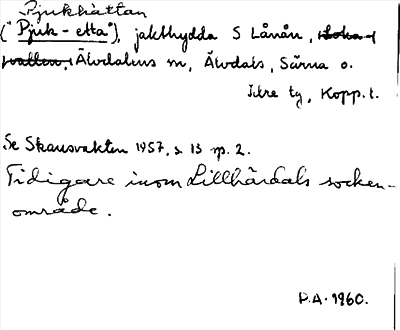 Pjukhättan
("Pjuk-etta"), jakthydda S Lånån,
Älvdalens sn, Älvdals, Särna o.
Idre tg, Kopp. l.
Se Skansvakten 1957, s 13 sp. 2.
Tidigare inom Lillhärdals socken-
område.
P.A. 1960.